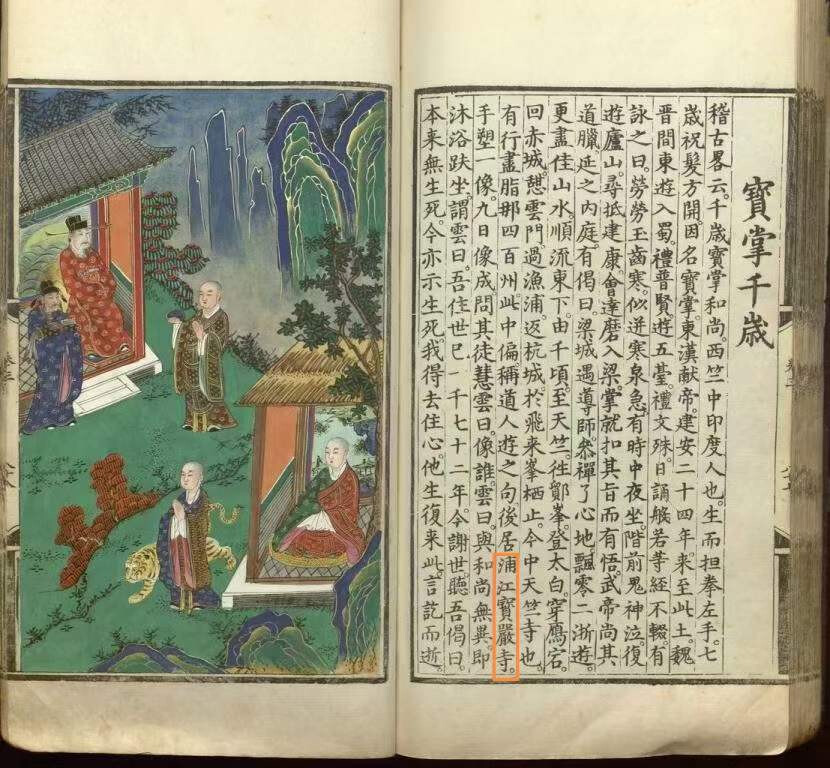 寶掌千歲
稽古畧云。千歲寶掌和尚。西竺中印度人也。生而担拳左手。七
歲祝髮方開。因名寶掌。東漢献帝。建安二十四年。来至此土。魏
晉間東遊入蜀。禮普賢遊五臺。禮文殊。日誦般若等經不輟。有
詠之曰。勞勞玉齒寒。似迸寒泉急。有時中夜坐。階前鬼神泣。復
遊廬山。尋抵建康。會達磨入梁。掌就扣其旨而有悟。武帝尚其
道臘。延之内庭。有偈曰。梁城遇導師。叅禪了心地。飄零二浙遊。
更盡佳山水。順流東下。由千頃。至天竺。徃鄮峯。登太白。穿鴈宕。
回赤城。憇雲門。過漁浦。返杭城。於飛来峯栖止。今中天竺寺也。
有行盡脂那四百州。此中偏稱道人遊之句。後居浦江寶嚴寺。
手塑一像。九日像成。問其徒慧雲曰。像誰。雲曰。與和尚無異。即
沐浴趺坐。謂雲曰。吾住世已一千七十二年。今謝世。聽吾偈曰。
本来無生死。今亦示生死。我得去住心。他生復来此。言訖而逝。